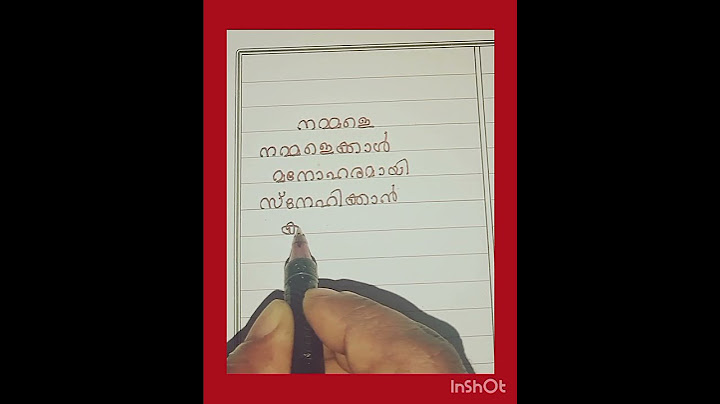 നമ്മളെ
നമ്മളെക്കാൾ
മനോഹരമായി
സ്നേഹിക്കാൻ
InShOt